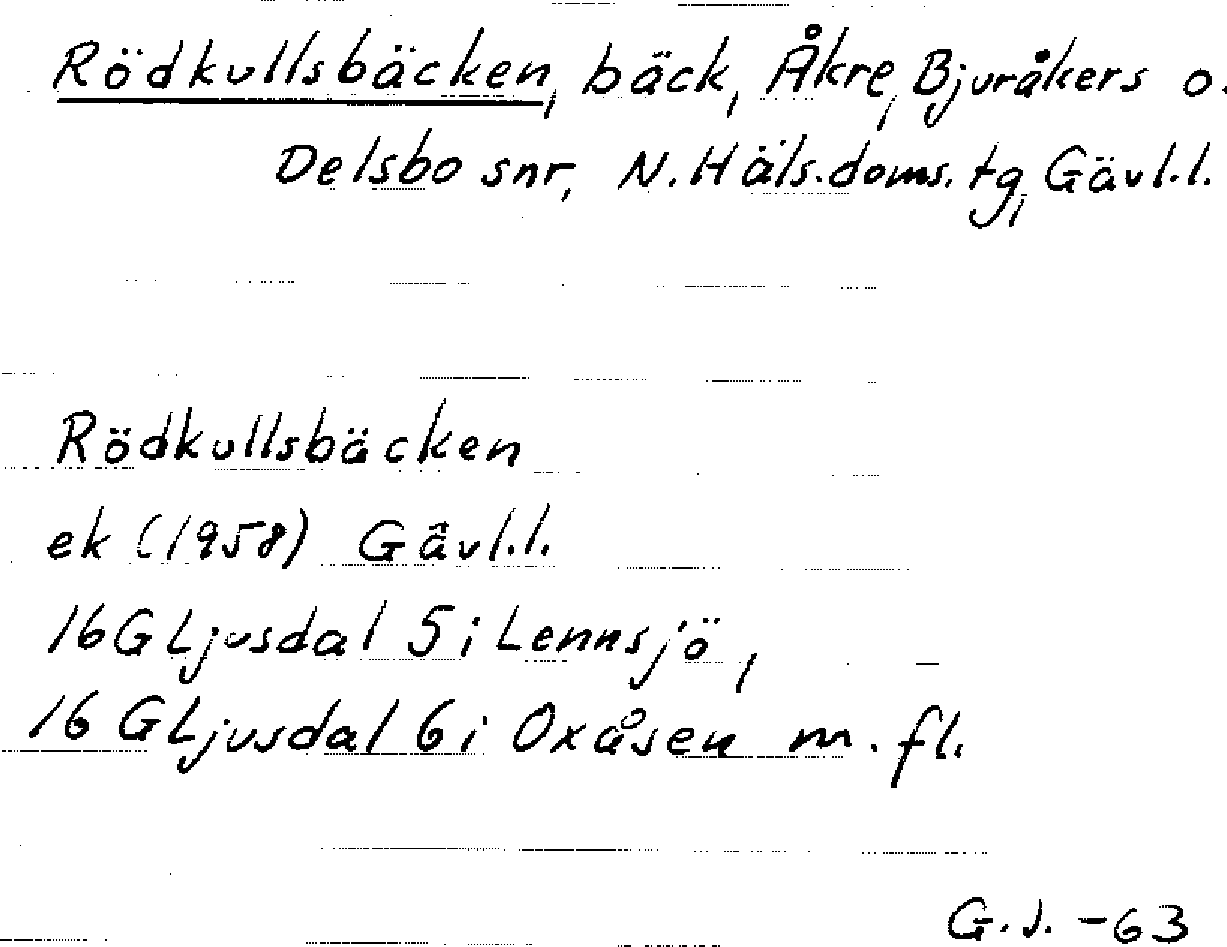 Rödkullsbäcken, bäck, Åkre, Bjuråkers o.
Delsbo snr, N. Häls.doms.tg, Gävl.l.
Rödkullsbäcken
ek (1958) Gävl.l.
16G Ljusdal 5i Lennsjö,
16G Ljusdal 6i Oxåsen m.fl.
G.J. -63